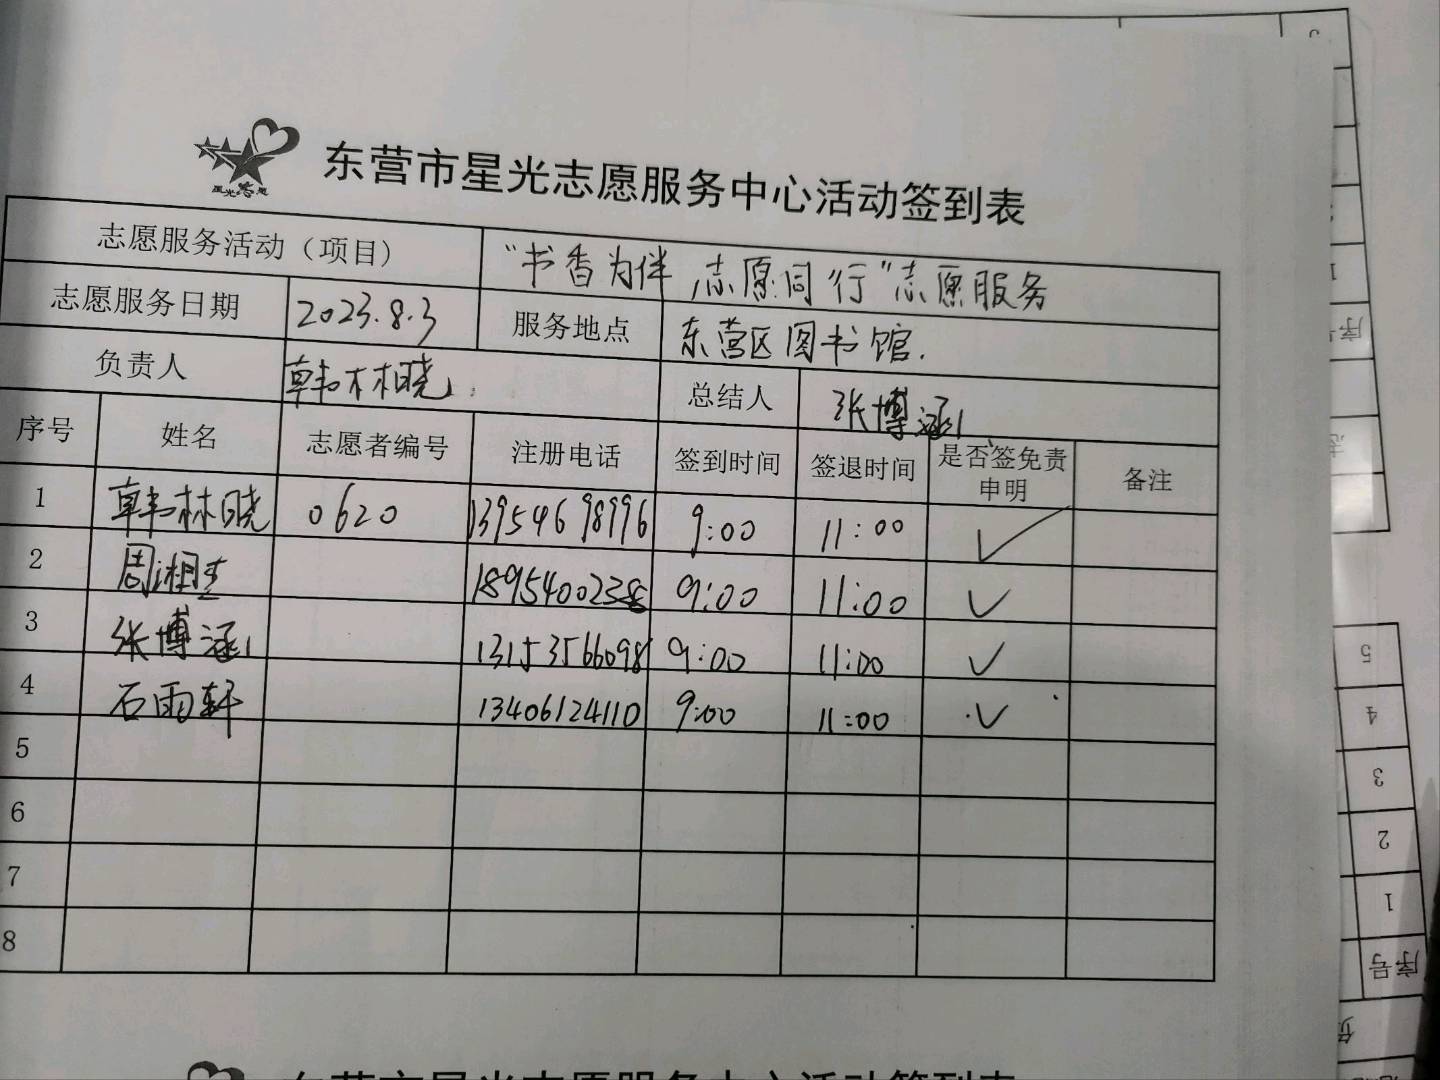 星光志愿
东营市星光志愿服务中心活动签到表
志愿服务活动（项目） “书香为伴，志愿同行”志愿服务
志愿服务日期 2023.8.3 服务地点 东营区图书馆.
负责人 韩林晓 总结人 张博涵
序号 姓名 志愿者编号 注册电话 签到时间 签退时间 是否签免责申明 备注
1 韩林晓 0620 13954698996 9:00 11:00 ✓
2 周湘 18954002388 9:00 11:00 ✓
3 张博涵 13153566098 9:00 11:00 ✓
4 石雨轩 13406124110 9:00 11:00 ✓
5
6
7
8
东营市星光志愿服务中心活动签到表
序号
1
5
4
3
2
1
序号